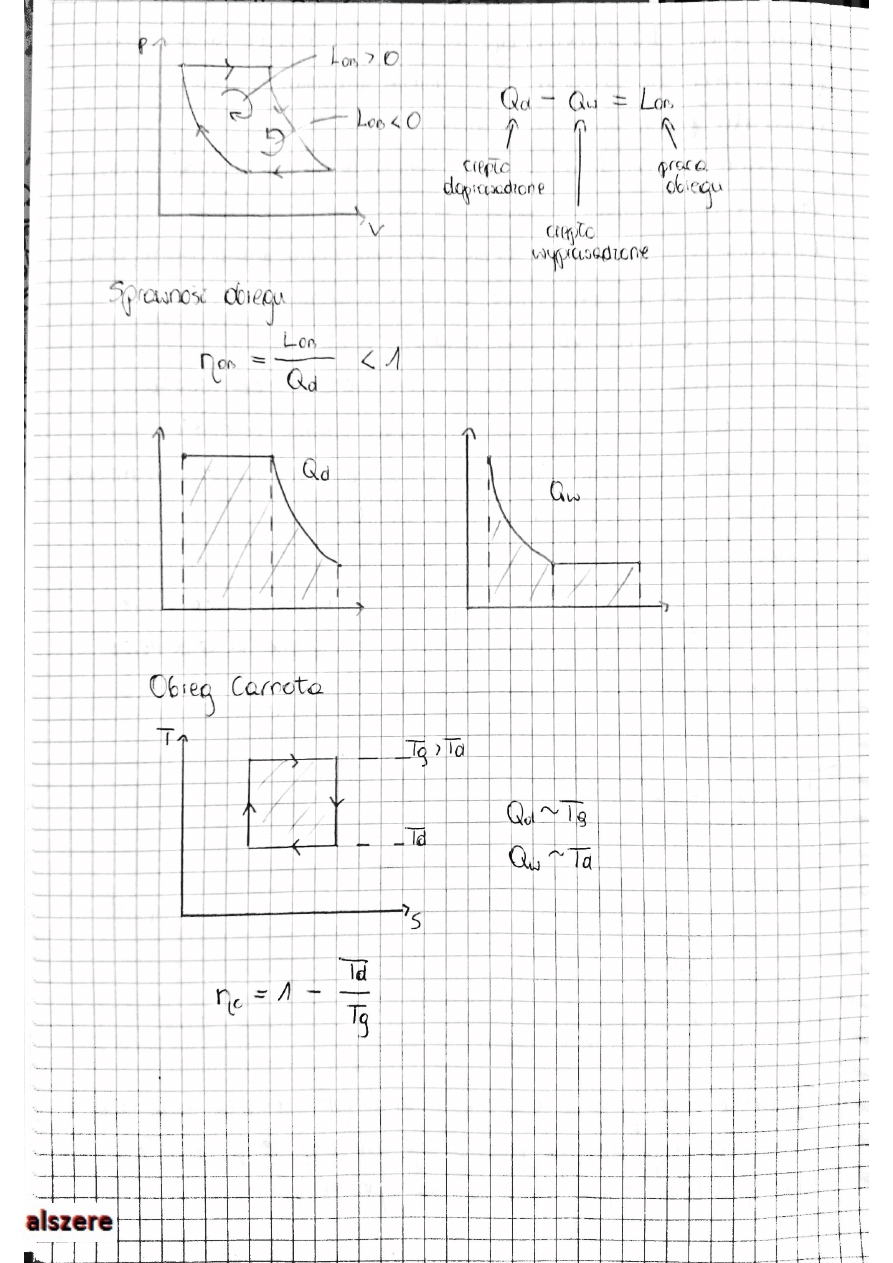 P
Lob > 0
Lob < 0
V
Qd - Qw = Lob
ciepło
doprowadzone
praca
obiegu
ciepło
wyprowadzone
Sprawność obiegu
ηob = Lob / Qd < 1
Qd
Qw
Obieg Carnota
T
Tg > Td
Td
S
Qd ~ Tg
Qw ~ Td
ηc = 1 - Td / Tg
alszere